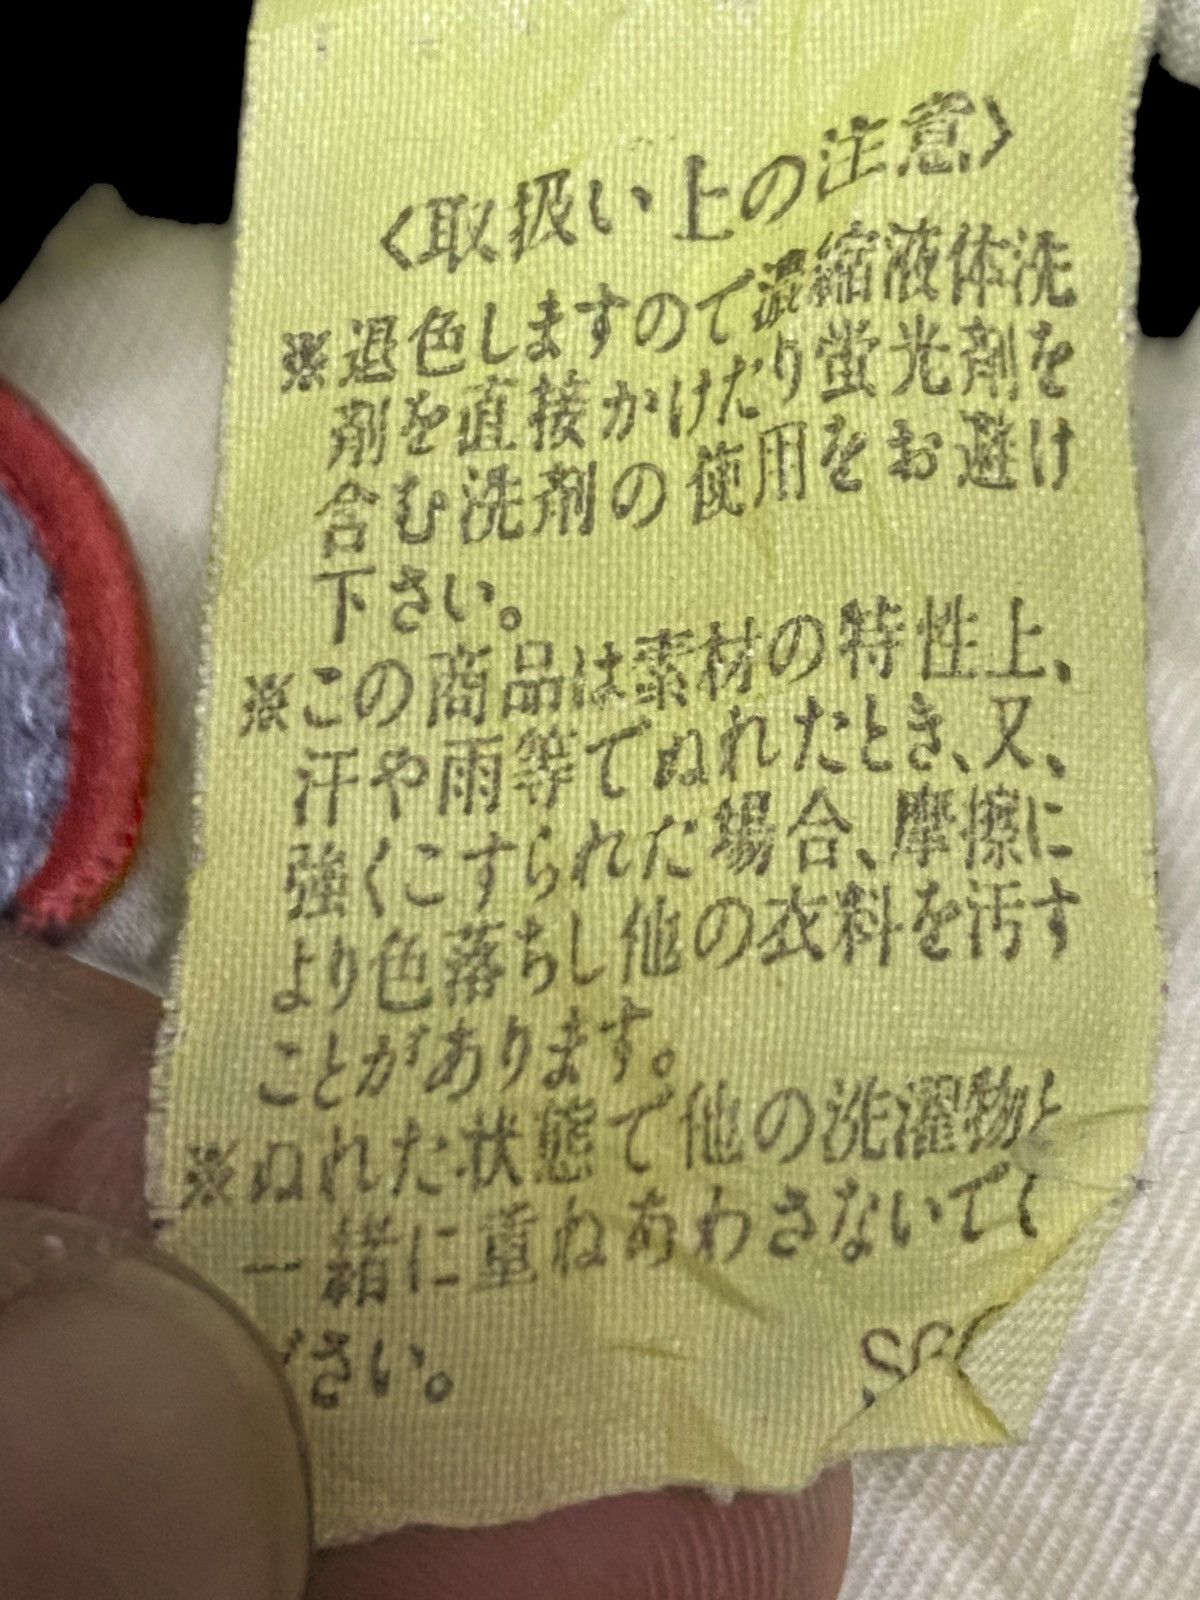 〈取扱い上の注意〉
※退色しますので濃縮液体洗
剤を直接かけたり蛍光剤を
含む洗剤の使用をお避け
下さい。
※この商品は素材の特性上、
汗や雨等でぬれたとき、又、
強くこすられた場合、摩擦に
より色落ちし他の衣料を汚す
ことがあります。
※ぬれた状態で他の洗濯物と
一緒に重ねあわさないでく
ださい。